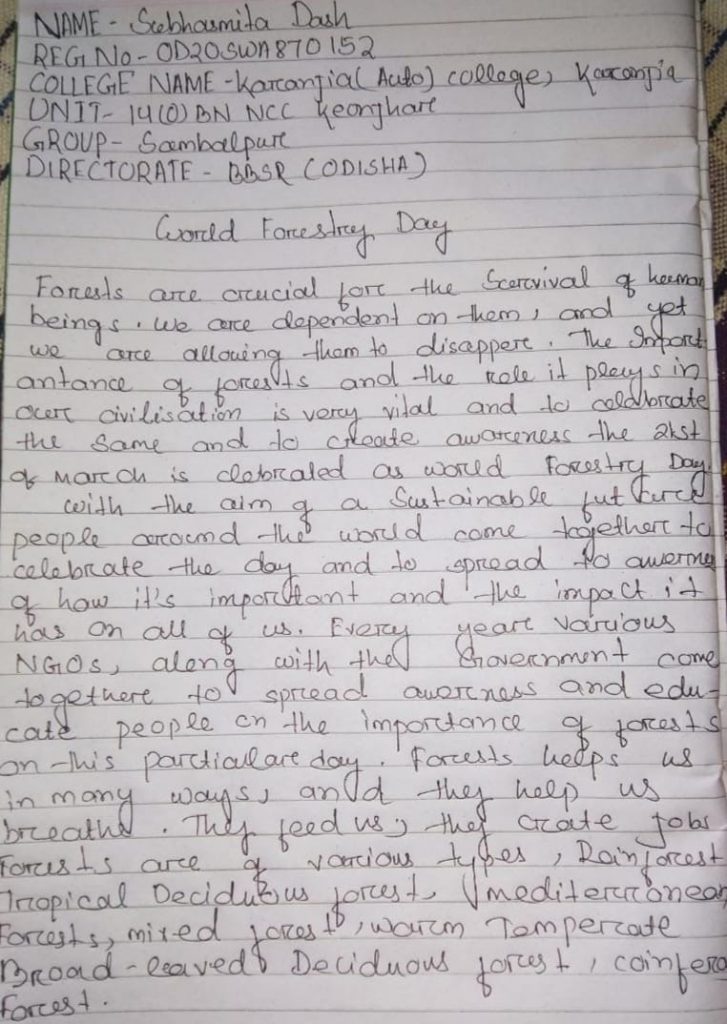 NAME - Subhasmita Dash
REG No - OD20SWA870152
COLLEGE NAME - Karanjia (Auto) college, Karanjia
UNIT - 14(O) BN NCC Keonjhar
GROUP - Sambalpur
DIRECTORATE - BBSR (ODISHA)
World Forestry Day
Forests are crucial for the Survival of human
beings. We are dependent on them, and yet
we are allowing them to disappere. The Import
antance of forests and the role it plays in
our civilisation is very vital and to celabrate
the same and to create awareness the 21st
of March is clebrated as world Forestry Day
with the aim of a Sustainable future
people around the world come together to
celebrate the day and to spread to awerne
of how it's important and the impact it
has on all of us. Every year various
NGOs, along with the Government come
together to spread awerness and edu-
cate people on the importance of forests
on this particular day. Forests helps us
in many ways, and they help us
breathe. They feed us, they create jobs
Forests are of various types, Rainforest
Tropical Deciduous forest, mediterranean
Forests, mixed forest, warm Temperate
Broad-leaved Deciduous forest, coinfero
Forest.